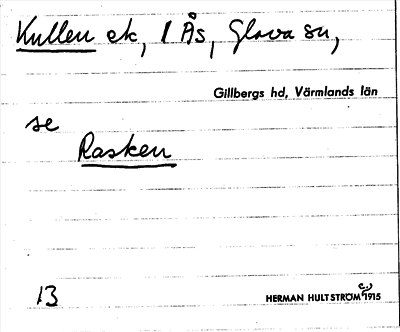 Kullen ek, 1 Ås, Glava sn,
Gillbergs hd, Värmlands län
se
Rasken
13
HERMAN HULTSTRÖM 1915